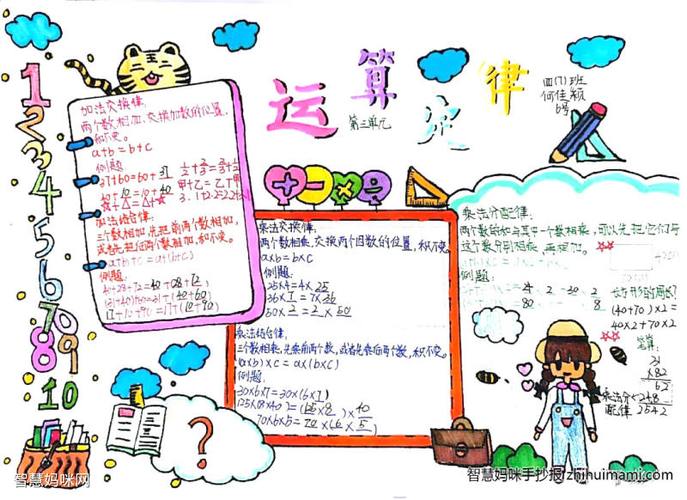 运算定律
第三单元
四(7)班
何佳颖
6号
1
2
3
4
5
6
7
8
9
10
加法交换律.
两个数相加,交换加数的位置,
和不变。
a+b=b+c
例题
37+60=60+37
加法结合律.
三个数相加,先把前两个数相加,
或者先把后两个数相加,和不变。
例题:
+ − × ÷
乘法交换律.
两个数相乘,交换两个因数的位置,积不变。
a×b=b×c
例题:
25×4=4×25
36×1=7×36
50×2=2×50
乘法结合律.
三个数相乘,先乘前两个数,或者先乘后两个数,积不变。
(a×b)×c=a×(b×c)
例题:
30×6×7=30×(6×7)
125×8×40=(125×8)×40
70×6×5=70×(6×5)
?
乘法分配律.
两个数的和与其中一个数相乘,可以先把它们与
这个数分别相乘,再相加。
例题:
长方形的周长?
(40+70)×2=
40×2+70×2
笔算:
31
×82
62
248
2542
乘法分
配律
智慧妈咪网
智慧妈咪手抄报/zhihuimami.com